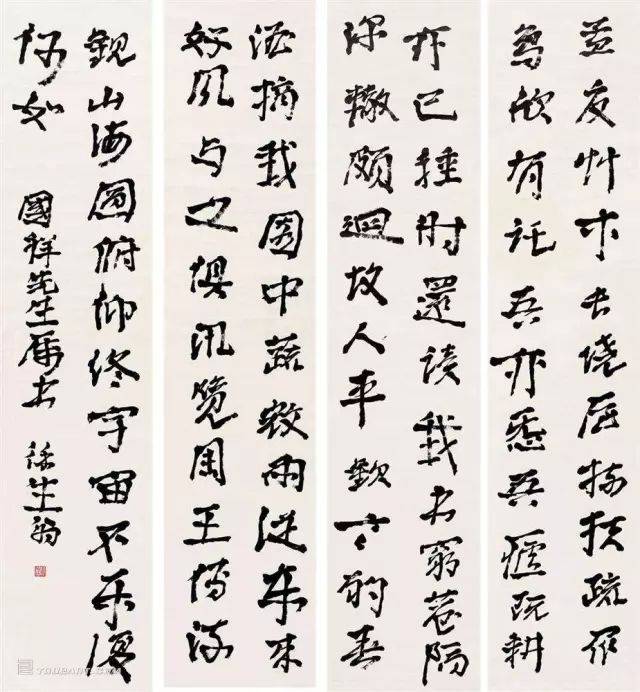 孟夏艸木長繞屋樹扶疏眾
鳥欣有託吾亦愛吾廬既耕
亦已種時還讀我書窮巷隔
深轍頗迴故人車歡言酌春
酒摘我園中蔬微雨從東來
好風与之俱汎覽周王傳流
觀山海圖俯仰終宇宙不樂復
何如
國祥先生屬書 徐生翁